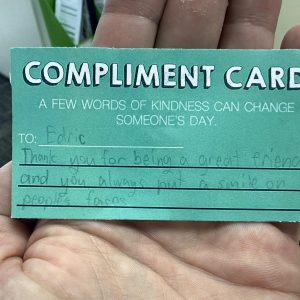 COMPLIMENT CARD
A FEW WORDS OF KINDNESS CAN CHANGE
SOMEONE'S DAY.
TO: Edric
Thank you for being a great friend
and you always put a smile on
peoples faces